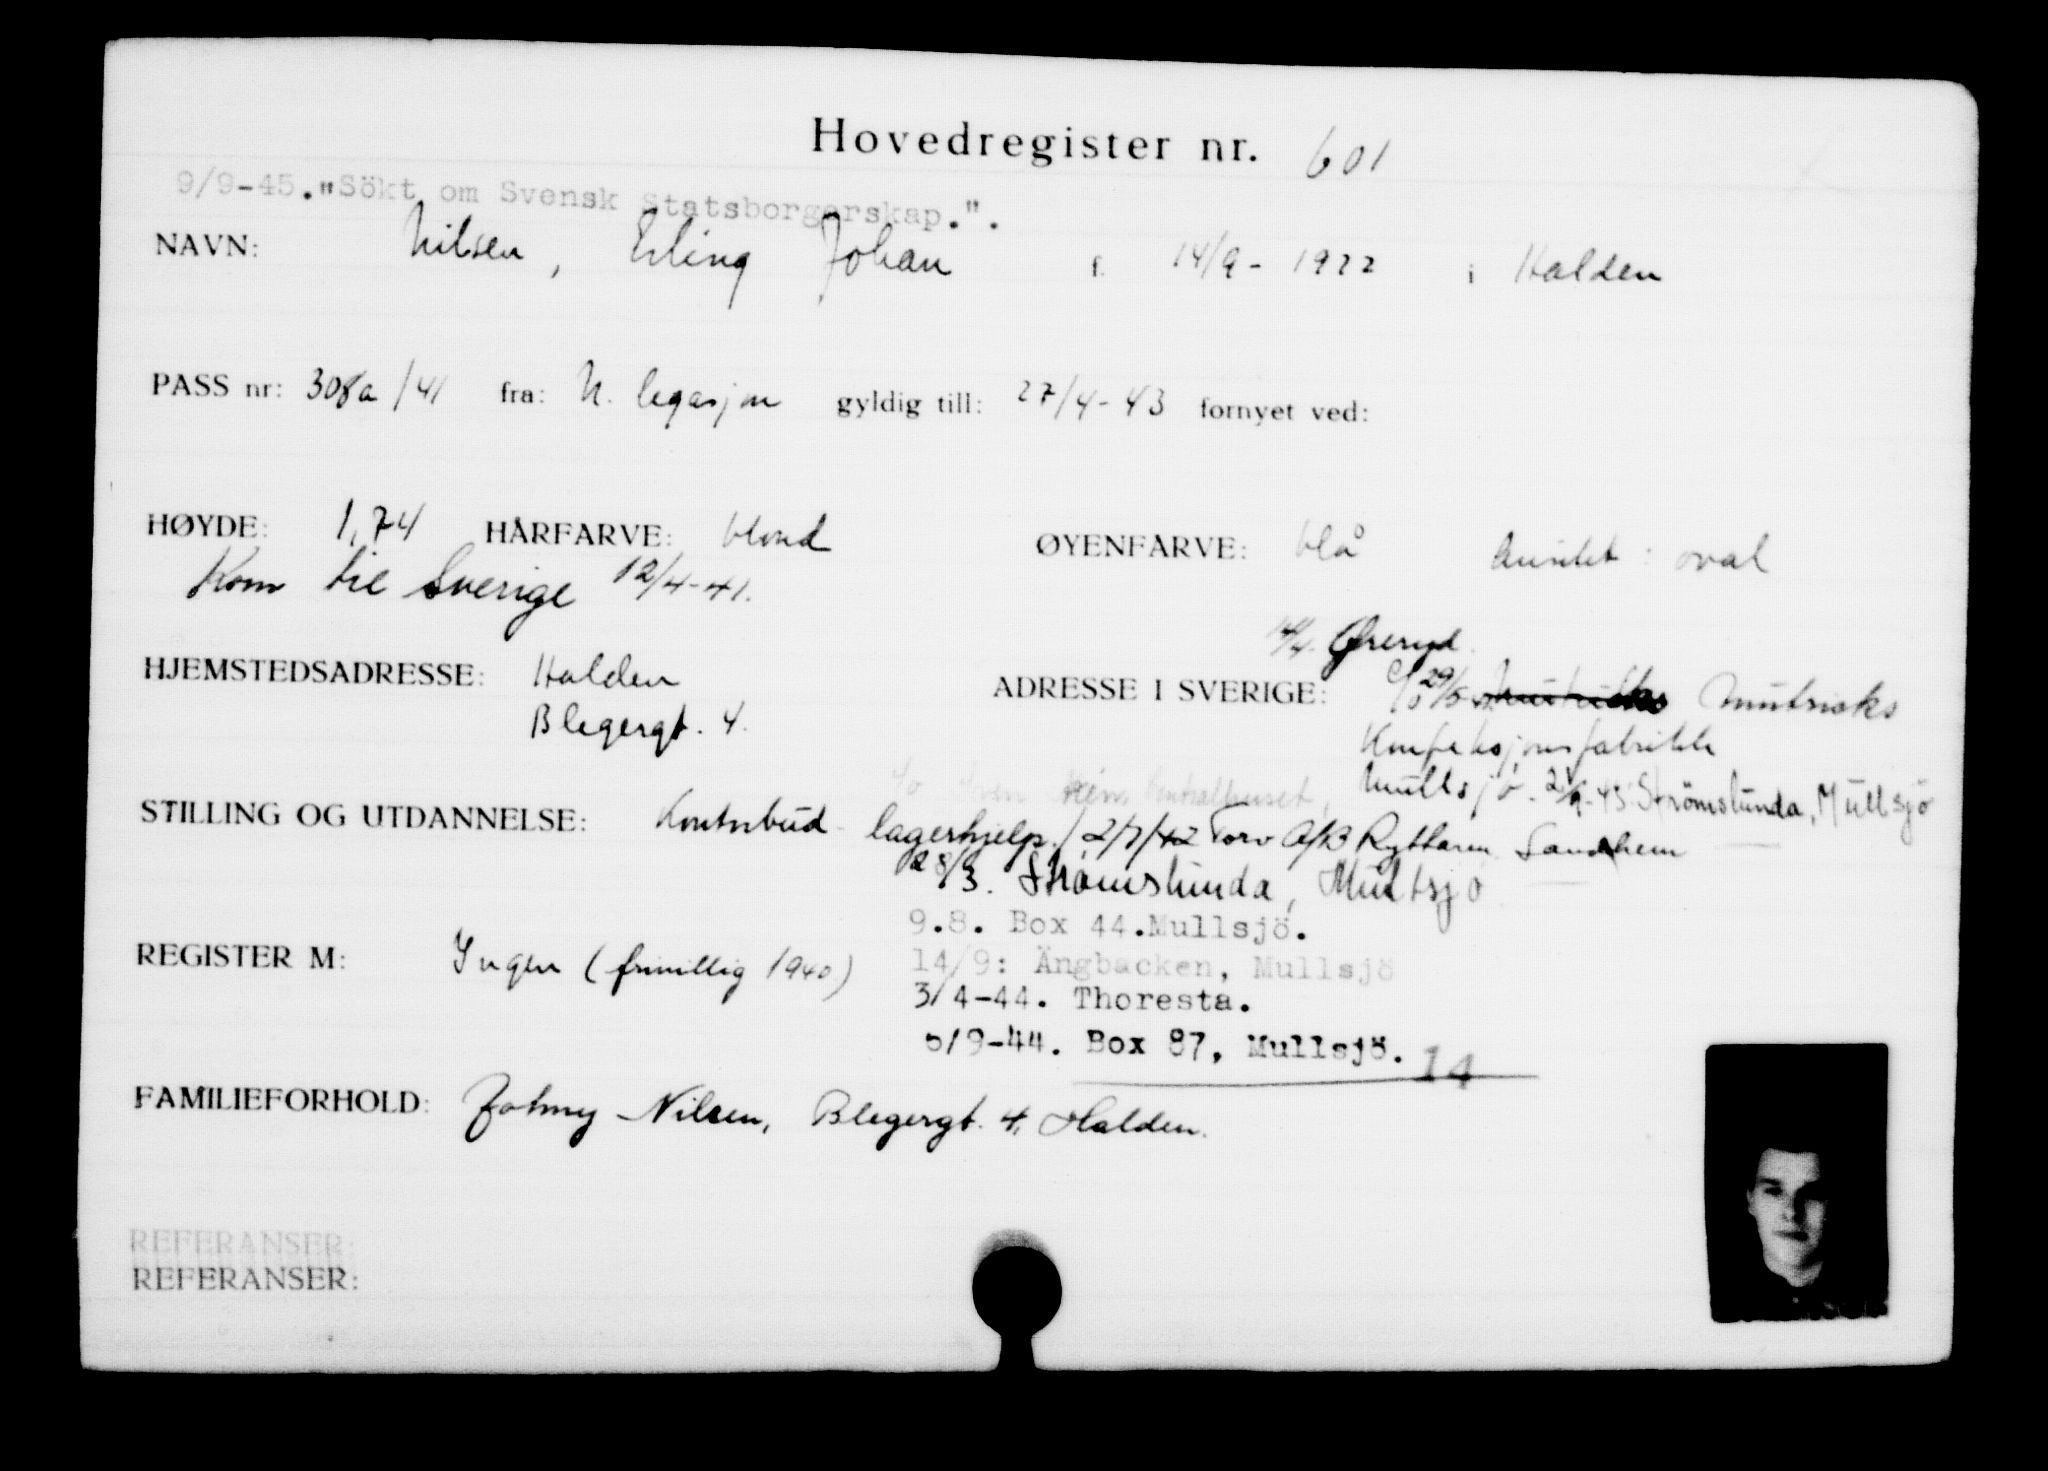 Hovedregister nr. 601
9/9-45."Sökt om Svensk Statsborgerskap.".
NAVN: Nilsen, Erling Johan f. 14/9-1922 i Halden
PASS nr: 308a/41 fra: N. legasjon gyldig till: 27/4-43 fornyet ved:
HØYDE: 1,74 HÅRFARVE: blond ØYENFARVE: blå Ansikt: oval
Kom til Sverige 12/4-41.
14/4. Øreryd.
HJEMSTEDSADRESSE: Halden ADRESSE I SVERIGE: c/o 29/5
Blegergt. 4. Konfeksjonsfabrikk
Mullsjö. 21/9-43 Strömslunda, Mullsjö
STILLING OG UTDANNELSE: Kontorbud - lagerhjelp. / 2/7/42 Torv A/B Ryttaren Sandhem
28/3. Strömslunda, Mullsjö
9.8. Box 44.Mullsjö.
REGISTER M: Ingen (frivillig 1940) 14/9: Ängbacken, Mullsjö
3/4-44. Thoresta.
5/9-44. Box 87, Mullsjö. 14
FAMILIEFORHOLD: Johny Nilsen, Blegergt. 4, Halden.
REFERANSER:
REFERANSER: